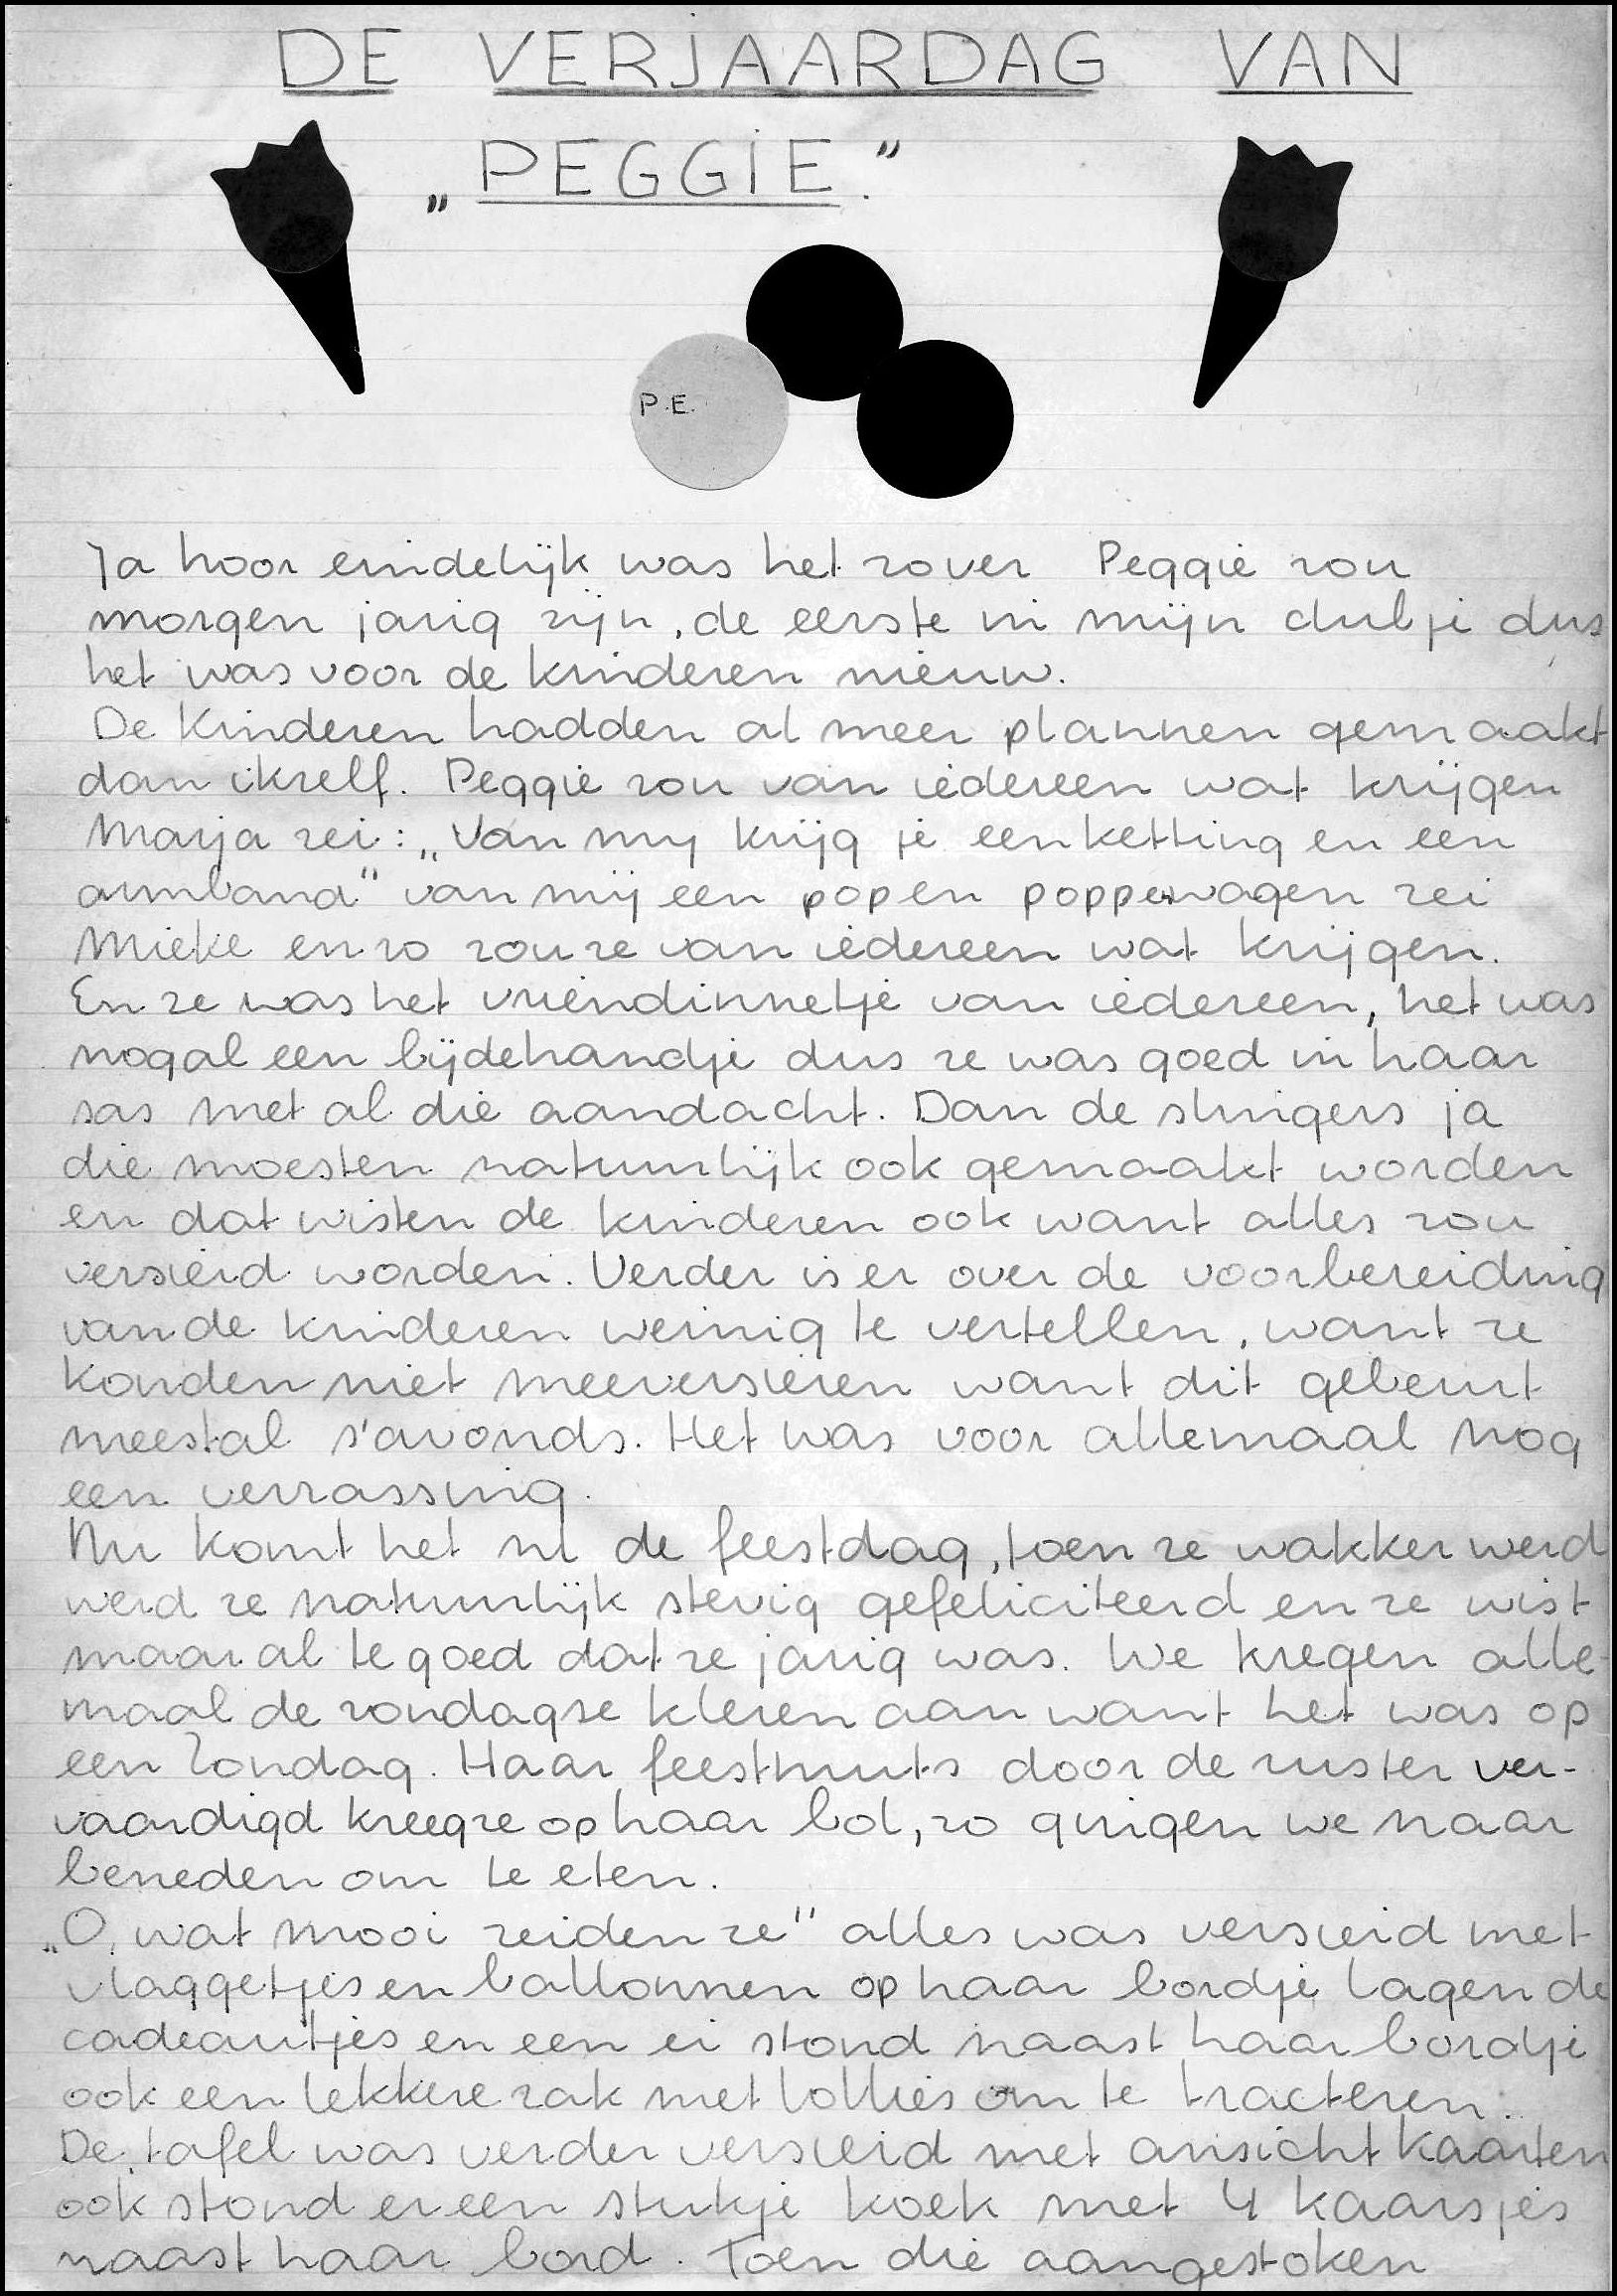 DE VERJAARDAG VAN
„PEGGIE."
P.E.
Ja hoor eindelijk was het zover Peggie zou
morgen jarig zijn, de eerste in mijn clubje dus
het was voor de kinderen nieuw.
De Kinderen hadden al meer plannen gemaakt
dan ikzelf. Peggie zou van iedereen wat krijgen
Marja zei: „Van mij krijg je een ketting en een
armband" van mij een pop en poppewagen zei
Mieke en zo zou ze van iedereen wat krijgen.
En ze was het vriendinnetje van iedereen, het was
nogal een bijdehandje dus ze was goed in haar
sas met al die aandacht. Dan de slingers ja
die moesten natuurlijk ook gemaakt worden
en dat wisten de kinderen ook want alles zou
versierd worden. Verder is er over de voorbereiding
van de kinderen weinig te vertellen, want ze
konden niet meeversieren want dit gebeurt
meestal s'avonds. Het was voor allemaal nog
een verrassing.
Nu komt het nl de feestdag, toen ze wakker werd
werd ze natuurlijk stevig gefeliciteerd en ze wist
maar al te goed dat ze jarig was. We kregen alle-
maal de zondagse kleren aan want het was op
een Zondag. Haar feestmuts door de zuster ver-
vaardigd kreeg ze op haar bol, zo gingen we naar
beneden om te eten.
„O, wat mooi zeiden ze" alles was versierd met
vlaggetjes en ballonnen op haar bordje lagen de
cadeautjes en een ei stond naast haar bordje
ook een lekkere zak met lollies om te tracteren.
De tafel was verder versierd met ansichtkaarten
ook stond er een stukje koek met 4 kaarsjes
naast haar bord. Toen die aangestoken